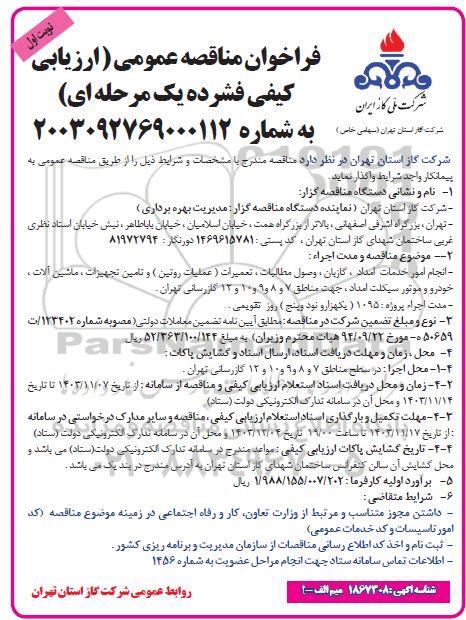 نوبت اول
فراخوان مناقصه عمومی (ارزیابی
کیفی فشرده یک مرحله ای)
به شماره ۲۰۰۳۰۹۲۷۶۹۰۰۰۱۱۲
شرکت ملی گاز ایران
شرکت گاز استان تهران (سهامی خاص)
شرکت گاز استان تهران در نظر دارد مناقصه مندرج با مشخصات و شرایط ذیل را از طریق مناقصه عمومی به
پیمانکار واجد شرایط واگذار نماید.
۱- نام و نشانی دستگاه مناقصه گزار:
-شرکت گاز استان تهران (نماینده دستگاه مناقصه گزار: مدیریت بهره برداری)
-تهران، بزرگراه اشرفی اصفهانی، بالاتر از بزرگراه همت، خیابان اسلامیان، خیابان باباطاهر، نبش خیابان استاد نظری
غربی ساختمان شهدای گاز استان تهران، کد پستی: ۱۴۶۹۶۱۵۷۸۱ دورنگار: ۸۱۹۷۲۷۹۴
۲-- موضوع مناقصه و مدت اجراء:
-انجام امور خدمات امداد، گازبان، وصول مطالبات، تعمیرات (عملیات روتین) و تامین تجهیزات، ماشین آلات،
خودرو و موتور سیکلت امداد، جهت مناطق ۷ و ۸ و ۹ و ۱۰ و ۱۲ گازرسانی تهران.
-مدت اجراء پروژه: ۱۰۹۵ (یکهزارو نود وپنج) روز تقویمی.
۳- نوع و مبلغ تضمین شرکت در مناقصه: مطابق آیین نامه تضمین معاملات دولتی (مصوبه شماره ۱۲۳۴۰۲/ت
۵۰۶۵۹ ه-مورخ ۹۴/۰۹/۲۲ هیات محترم وزیران) به مبلغ ۵۲/۳۶۳/۱۰۰/۱۴۴ ریال
۴- محل، زمان و مهلت دریافت اسناد، ارسال اسناد و گشایش پاکات:
۴-۱- محل اجرا: در سطح مناطق ۷ و ۸ و ۹ و ۱۰ و ۱۲ گازرسانی تهران.
۴-۲- زمان و محل دریافت اسناد استعلام ارزیابی کیفی و مناقصه از سامانه: از تاریخ ۱۴۰۳/۱۱/۰۷ تا تاریخ
۱۴۰۳/۱۱/۱۴ و محل آن در سامانه تدارک الکترونیکی دولت (ستاد)
۴-۳-مهلت تکمیل و بارگذاری اسناد استعلام ارزیابی کیفی، مناقصه و سایر مدارک درخواستی در سامانه
: از تاریخ ۱۴۰۳/۱۱/۱۷ تا ساعت ۱۹:۰۰ تاریخ ۱۴۰۳/۱۲/۰۴ و محل آن در سامانه تدارک الکترونیکی دولت (ستاد)
۴-۴- تاریخ گشایش پاکات ارزیابی کیفی: مواعد مندرج در سامانه تدارک الکترونیکی دولت(ستاد) می باشد و
محل گشایش آن سالن کنفرانس ساختمان شهدای گاز استان تهران به آدرس مندرج در بند یک می باشد.
۵- برآورد اولیه کارفرما: ۱/۹۸۸/۱۵۵/۰۰۷/۲۰۲ ریال.
۶- شرایط متقاضی:
- داشتن مجوز متناسب و مرتبط از وزارت تعاون، کار و رفاه اجتماعی در زمینه موضوع مناقصه (کد
امور تاسیسات و کد خدمات عمومی)
- ثبت نام و اخذ کد اطلاع رسانی مناقصات از سازمان مدیریت و برنامه ریزی کشور.
- اطلاعات تماس سامانه ستاد جهت انجام مراحل عضویت به شماره ۱۴۵۶
روابط عمومی شرکت گاز استان تهران
شناسه آگهی: ۱۸۶۷۳۰۸ میم الف-